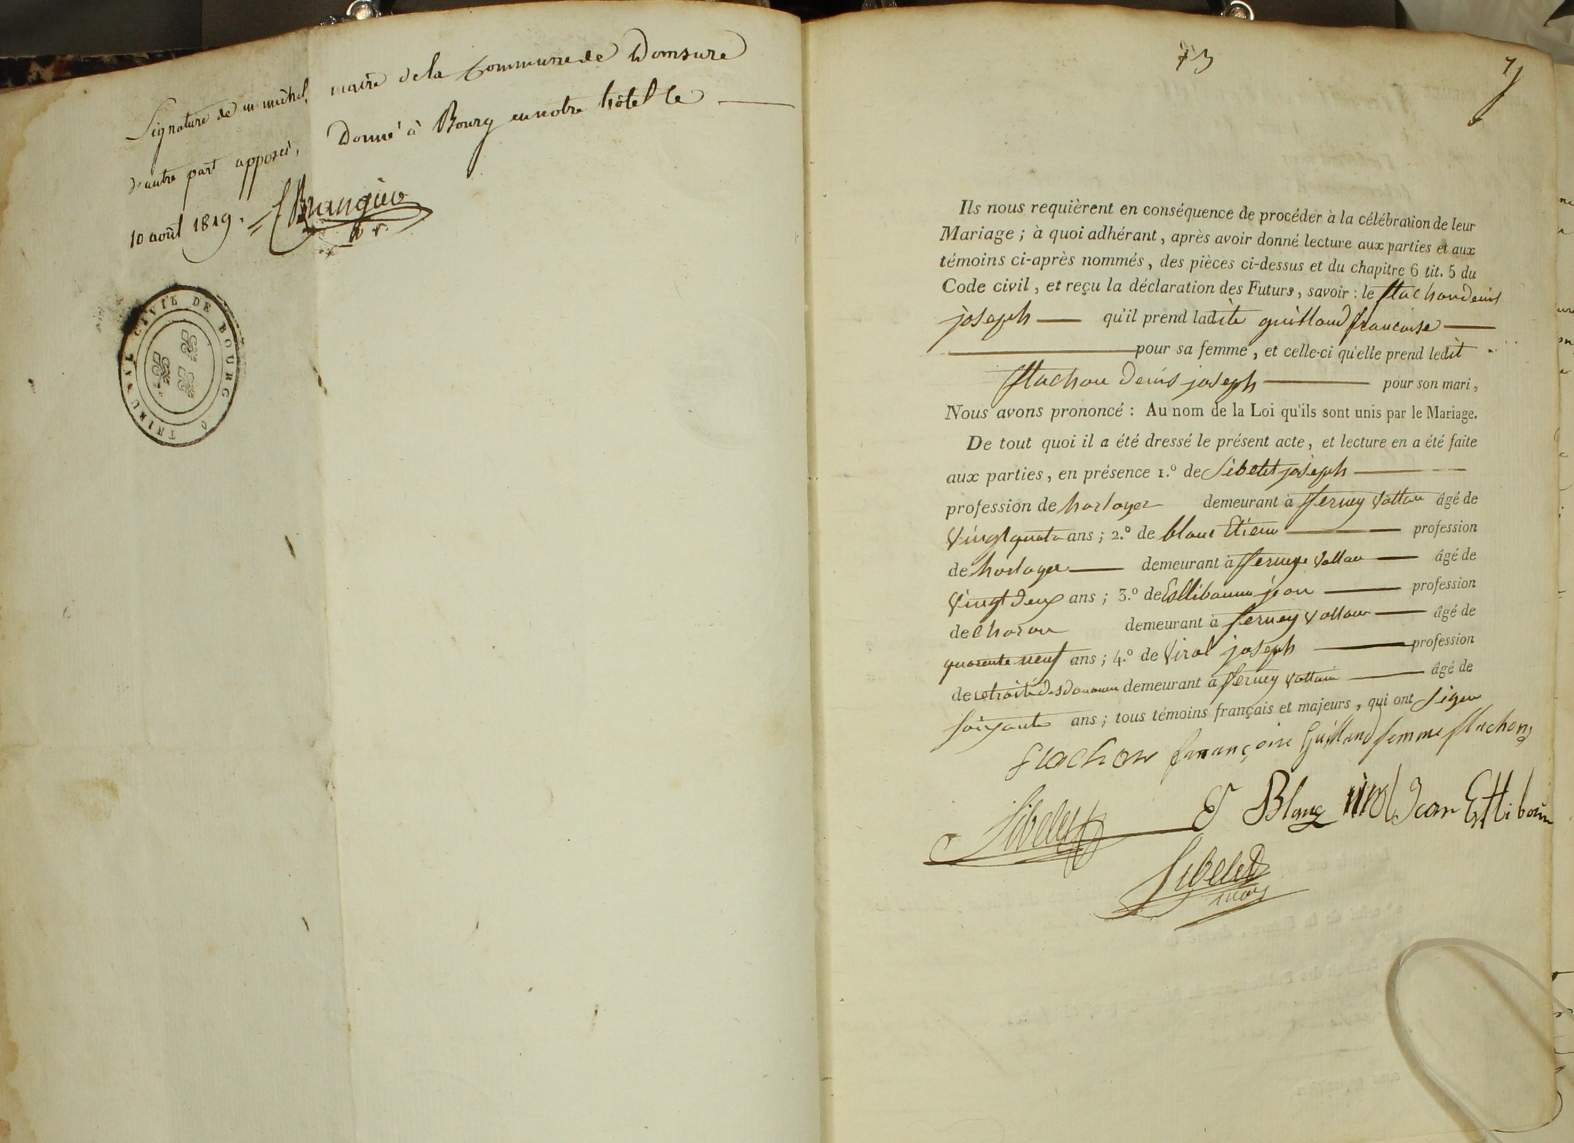 Signature de m michel, maire de la Commune de Domsure
d'autre part apposée, Donné à Bourg en notre hôtel le
10 août 1819.
TRIBUNAL CIVIL DE BOURG
73
Ils nous requièrent en conséquence de procéder à la célébration de leur
Mariage ; à quoi adhérant, après avoir donné lecture aux parties et aux
témoins ci-après nommés, des pièces ci-dessus et du chapitre 6 tit. 5 du
Code civil, et reçu la déclaration des Futurs, savoir : le flachon denis
joseph qu'il prend ladite guilland francoise
pour sa femme, et celle-ci qu'elle prend ledit
flachon denis joseph pour son mari,
Nous avons prononcé : Au nom de la Loi qu'ils sont unis par le Mariage.
De tout quoi il a été dressé le présent acte, et lecture en a été faite
aux parties, en présence 1.º de Sibelet joseph
profession de horloger demeurant à ferney Voltair âgé de
Vingt quatr ans ; 2.º de blanc Etienn profession
de horloger demeurant à ferney Voltair âgé de
Vingt deux ans ; 3.º de jean profession
de charon demeurant à ferney Voltair âgé de
quarente neuf ans ; 4.º de Viral joseph profession
de retraité des douanes demeurant à ferney Voltair âgé de
soixante ans ; tous témoins français et majeurs, qui ont signé
flachon françoise Guilland femme flachon
Sibelet E Blanc viral Jean
Sibelet